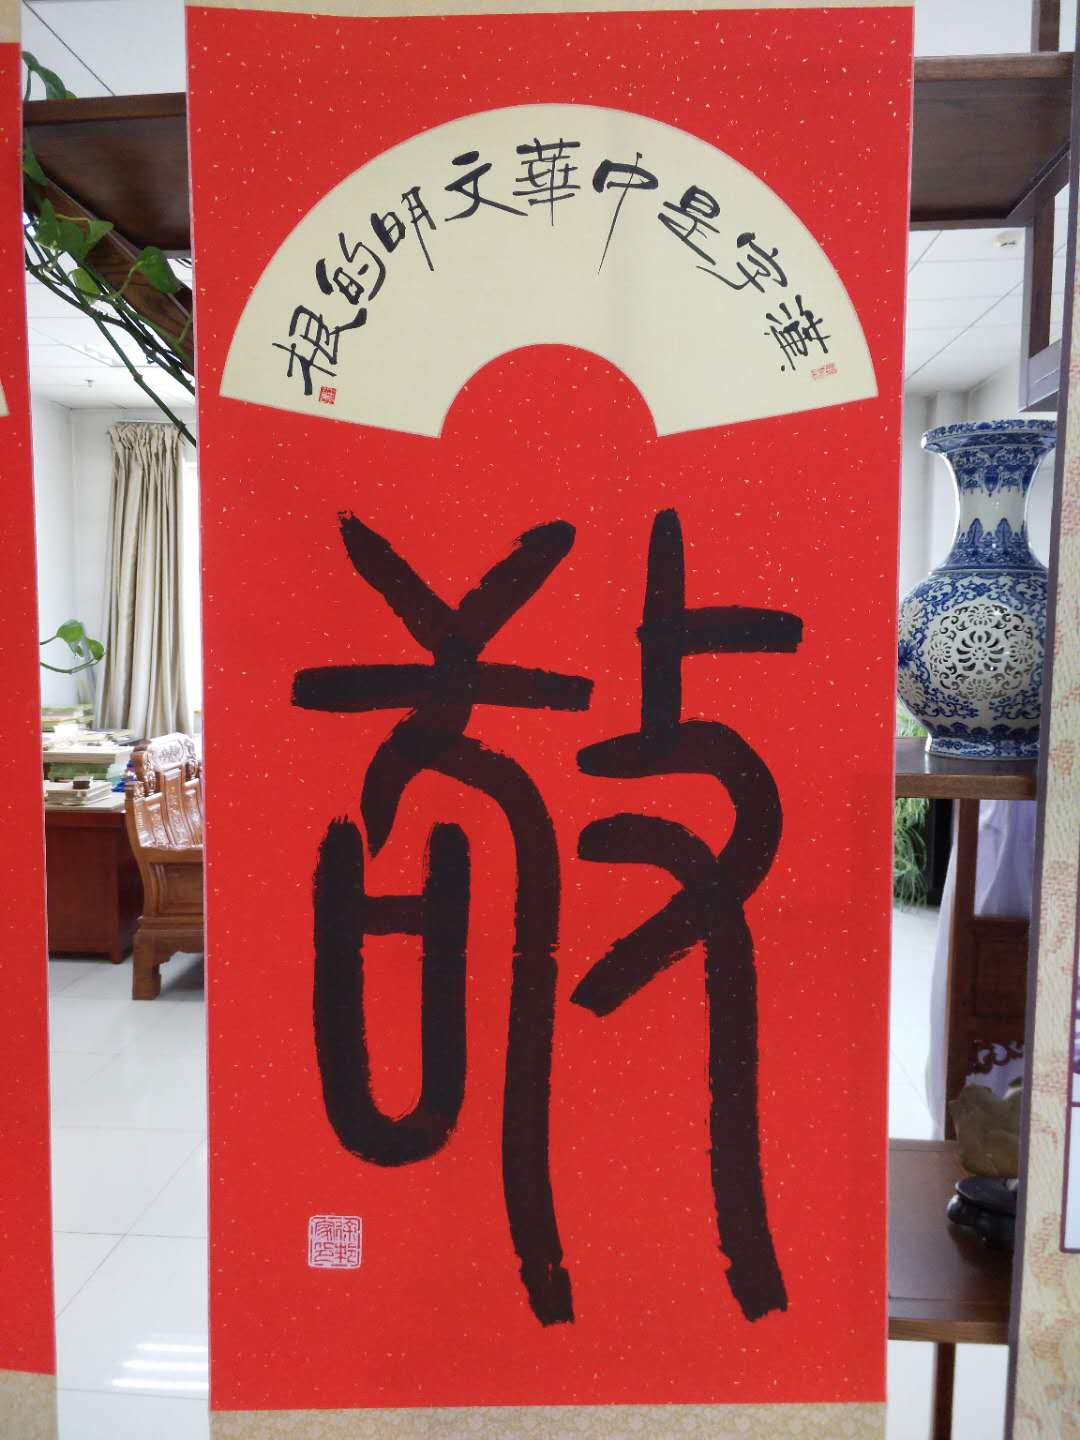 漢字是中華文明的根
敬